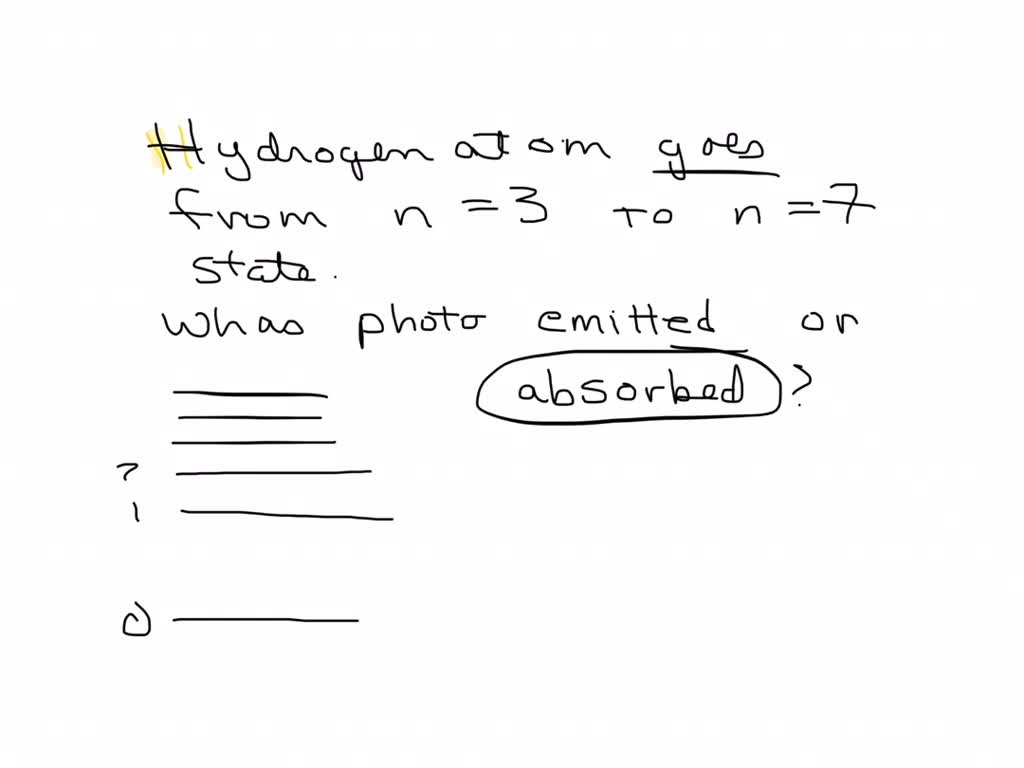 Hydrogen atom goes
from n = 3 to n = 7
state.
Whas photo emitted or
absorbed ?
?
1
0